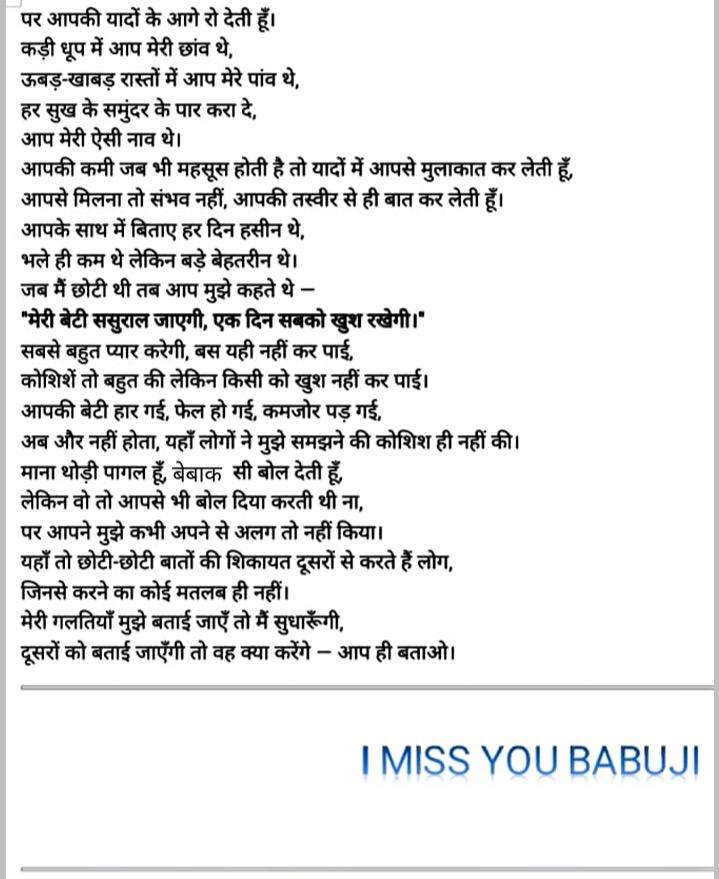 पर आपकी यादों के आगे रो देती हूँ।
कड़ी धूप में आप मेरी छांव थे,
ऊबड़-खाबड़ रास्तों में आप मेरे पांव थे,
हर सुख के समुंदर के पार करा दे,
आप मेरी ऐसी नाव थे।
आपकी कमी जब भी महसूस होती है तो यादों में आपसे मुलाकात कर लेती हूँ,
आपसे मिलना तो संभव नहीं, आपकी तस्वीर से ही बात कर लेती हूँ।
आपके साथ में बिताए हर दिन हसीन थे,
भले ही कम थे लेकिन बड़े बेहतरीन थे।
जब मैं छोटी थी तब आप मुझे कहते थे –
"मेरी बेटी ससुराल जाएगी, एक दिन सबको खुश रखेगी।"
सबसे बहुत प्यार करेगी, बस यही नहीं कर पाई,
कोशिशें तो बहुत की लेकिन किसी को खुश नहीं कर पाई।
आपकी बेटी हार गई, फेल हो गई, कमजोर पड़ गई,
अब और नहीं होता, यहाँ लोगों ने मुझे समझने की कोशिश ही नहीं की।
माना थोड़ी पागल हूँ, बेबाक सी बोल देती हूँ,
लेकिन वो तो आपसे भी बोल दिया करती थी ना,
पर आपने मुझे कभी अपने से अलग तो नहीं किया।
यहाँ तो छोटी-छोटी बातों की शिकायत दूसरों से करते हैं लोग,
जिनसे करने का कोई मतलब ही नहीं।
मेरी गलतियाँ मुझे बताई जाएँ तो मैं सुधारूँगी,
दूसरों को बताई जाएँगी तो वह क्या करेंगे – आप ही बताओ।
I MISS YOU BABUJI